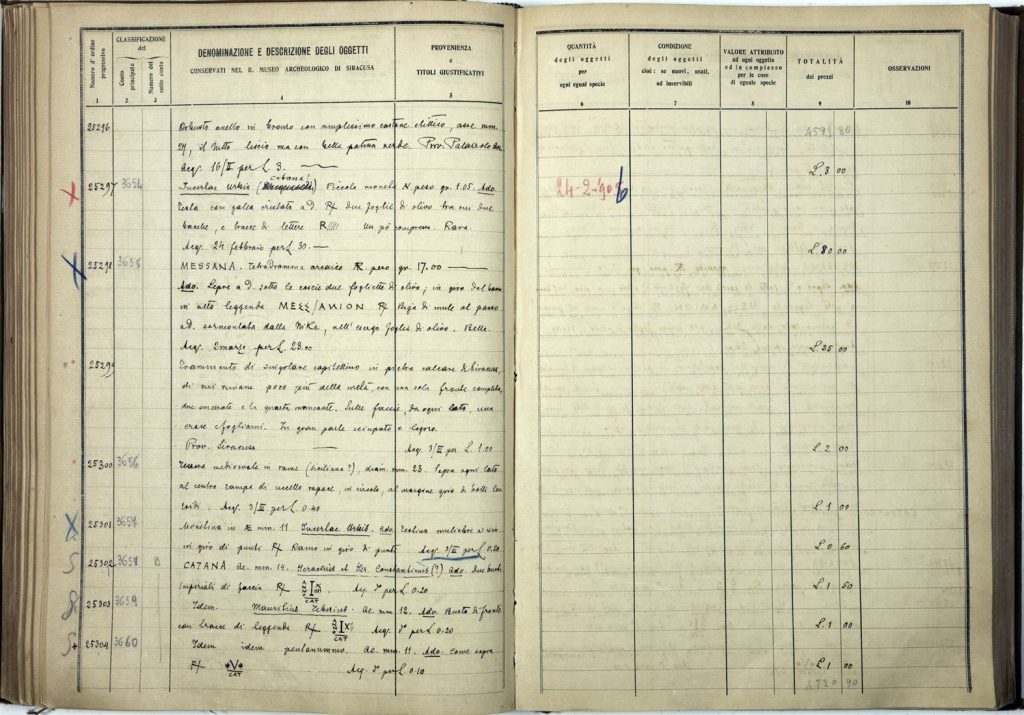 Numero d'ordine progressivo
CLASSIFICAZIONE del
Conto principale
Numero del sotto conto
DENOMINAZIONE E DESCRIZIONE DEGLI OGGETTI
CONSERVATI NEL R. MUSEO ARCHEOLOGICO DI SIRACUSA
PROVENIENZA
e
TITOLI GIUSTIFICATIVI
1 2 3 4 5
25296 Robusto anello in bronzo con amplissimo castone ellittico, asse mm.
29, il tutto liscio ma con bella patina verde. Prov. Palazzolo
Acq. 16/II per L. 3.
25297 3654 Incertae Urbis (Catana?) Piccola moneta peso gr. 1.05. Adv.
Testa con galea cristata a D. Rx due foglie di olivo tra cui due
bacche, e tracce di lettere R Un pò compressa. Rara.
Acq. 24 febbraio per L. 30.
25298 3655 MESSANA. Tetradramma arcaico AR. peso gr. 17.00
Adv. Lepre a D. sotto le coscie due fogliette di olivo; in giro dal basso
in alto leggenda MESS/ANION Rx Biga di mule al passo
a D. sormontata dalla Nike, nell'esergo foglia di olivo. Bella.
Acq. 2 marzo per L. 23.00
25299 Frammento di singolare capitellino in pietra calcare di Siracusa,
di cui rimane poco più della metà, con una sola fronte completa,
due smezzate e la quarta mancante. Sulle faccie, da ogni lato, una
croce a fogliami. In gran parte sciupato e logoro.
Prov. Siracusa — Acq. 3/III per L. 1.00
25300 3656 Tessera medioevale in rame (siciliana?), diam. mm. 23. Sopra ogni lato
al centro zampa di uccello rapace, in circolo, al margine giro di
Acq. 3/III per L. 0.40
25301 3657 Monetina in Æ mm. 11 Incertae Urbis. Adv. Testina muliebre a sin.
in giro di punti Rx Ramo in giro di punti Acq. 3/III per L. 0.20
25302 3658 B CATANA Ae. mm. 14. Heraclius et Her. Constantinus (?) Adv. due busti
imperiali di faccia Rx CAT Acq. per L. 0.20
25303 3659 Idem. Mauritius Tiberius. Ae. mm. 12. Adv. Busto di fronte
con tracce di leggenda Rx CAT Acq. per L. 0.20
25304 3660 Idem idem pentanummo. Ae. mm. 11. Adv. Come sopra
Rx *V* CAT Acq. per L. 0.10
QUANTITÀ
degli oggetti
per
ogni egual specie
CONDIZIONE
degli oggetti
cioè: se nuovi, usati,
od inservibili
VALORE ATTRIBUITO
ad ogni oggetto
ed in complesso
per le cose
di eguale specie
TOTALITÀ
dei prezzi
OSSERVAZIONI
6 7 8 9 10
4595 80
L. 3 00
24-2-906
L. 80 00
L. 35 00
L. 2 00
L. 1 00
L. 0 60
L. 1 50
L. 1 00
L. 1 00
4720 90